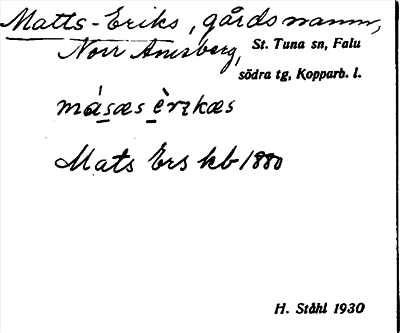 Matts-Eriks, gårdsnamn,
Norr Amsberg, St. Tuna sn, Falu
södra tg, Kopparb. l.
másæs èrikæs
Mats Ers kb 1880
H. Ståhl 1930